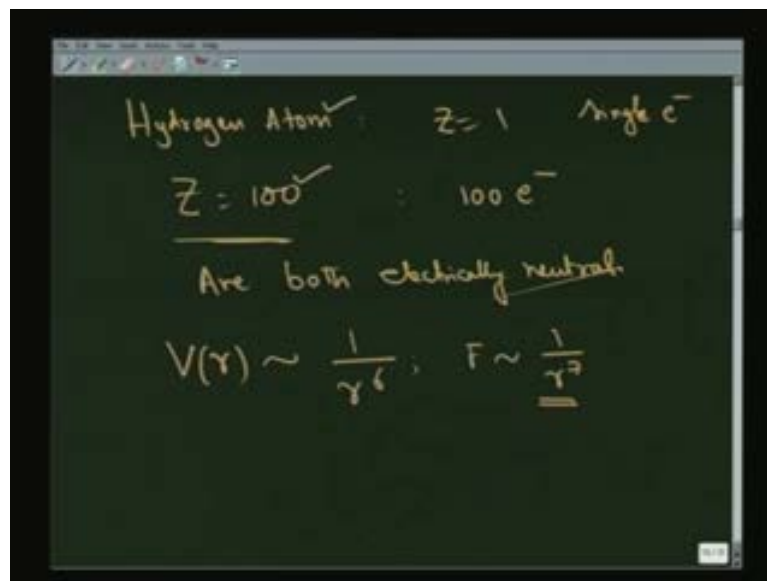 Hydrogen Atom : Z = 1 Single e⁻
Z = 100 : 100 e⁻
Are both electrically neutral.
V(r) ~ 1/r⁶, F ~ 1/r⁷